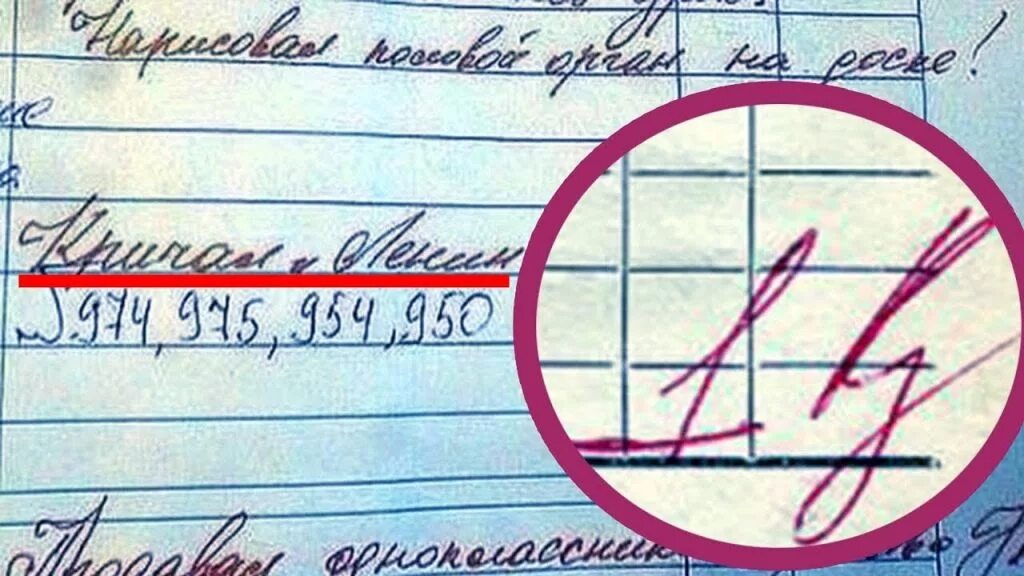 Нарисовал половой орган на доске!
Кричал „ Ленин
№ 974, 975, 954, 950
1
Продавал одноклассник